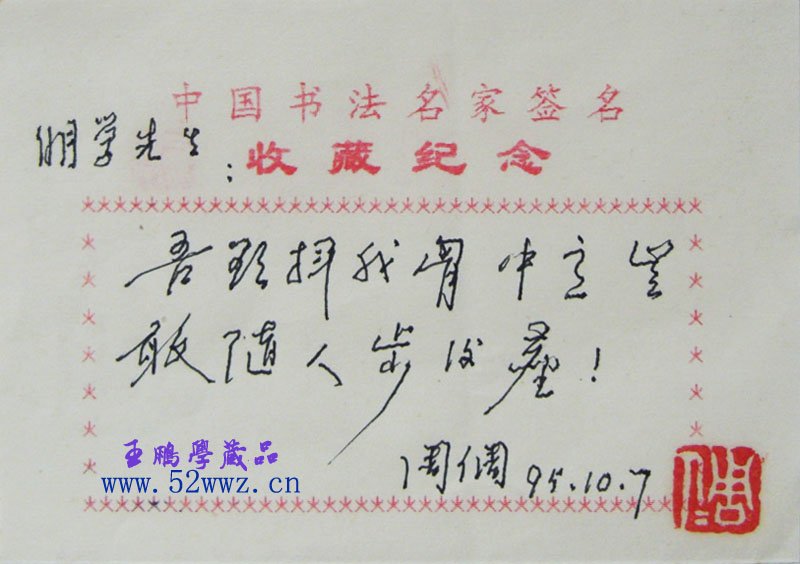 中国书法名家签名
倗学先生：
收藏纪念
吾欲抒我胷中意岂
敢随人步后尘！
周倜 95.10.7
王鵬學藏品
www.52wwz.cn
周倜